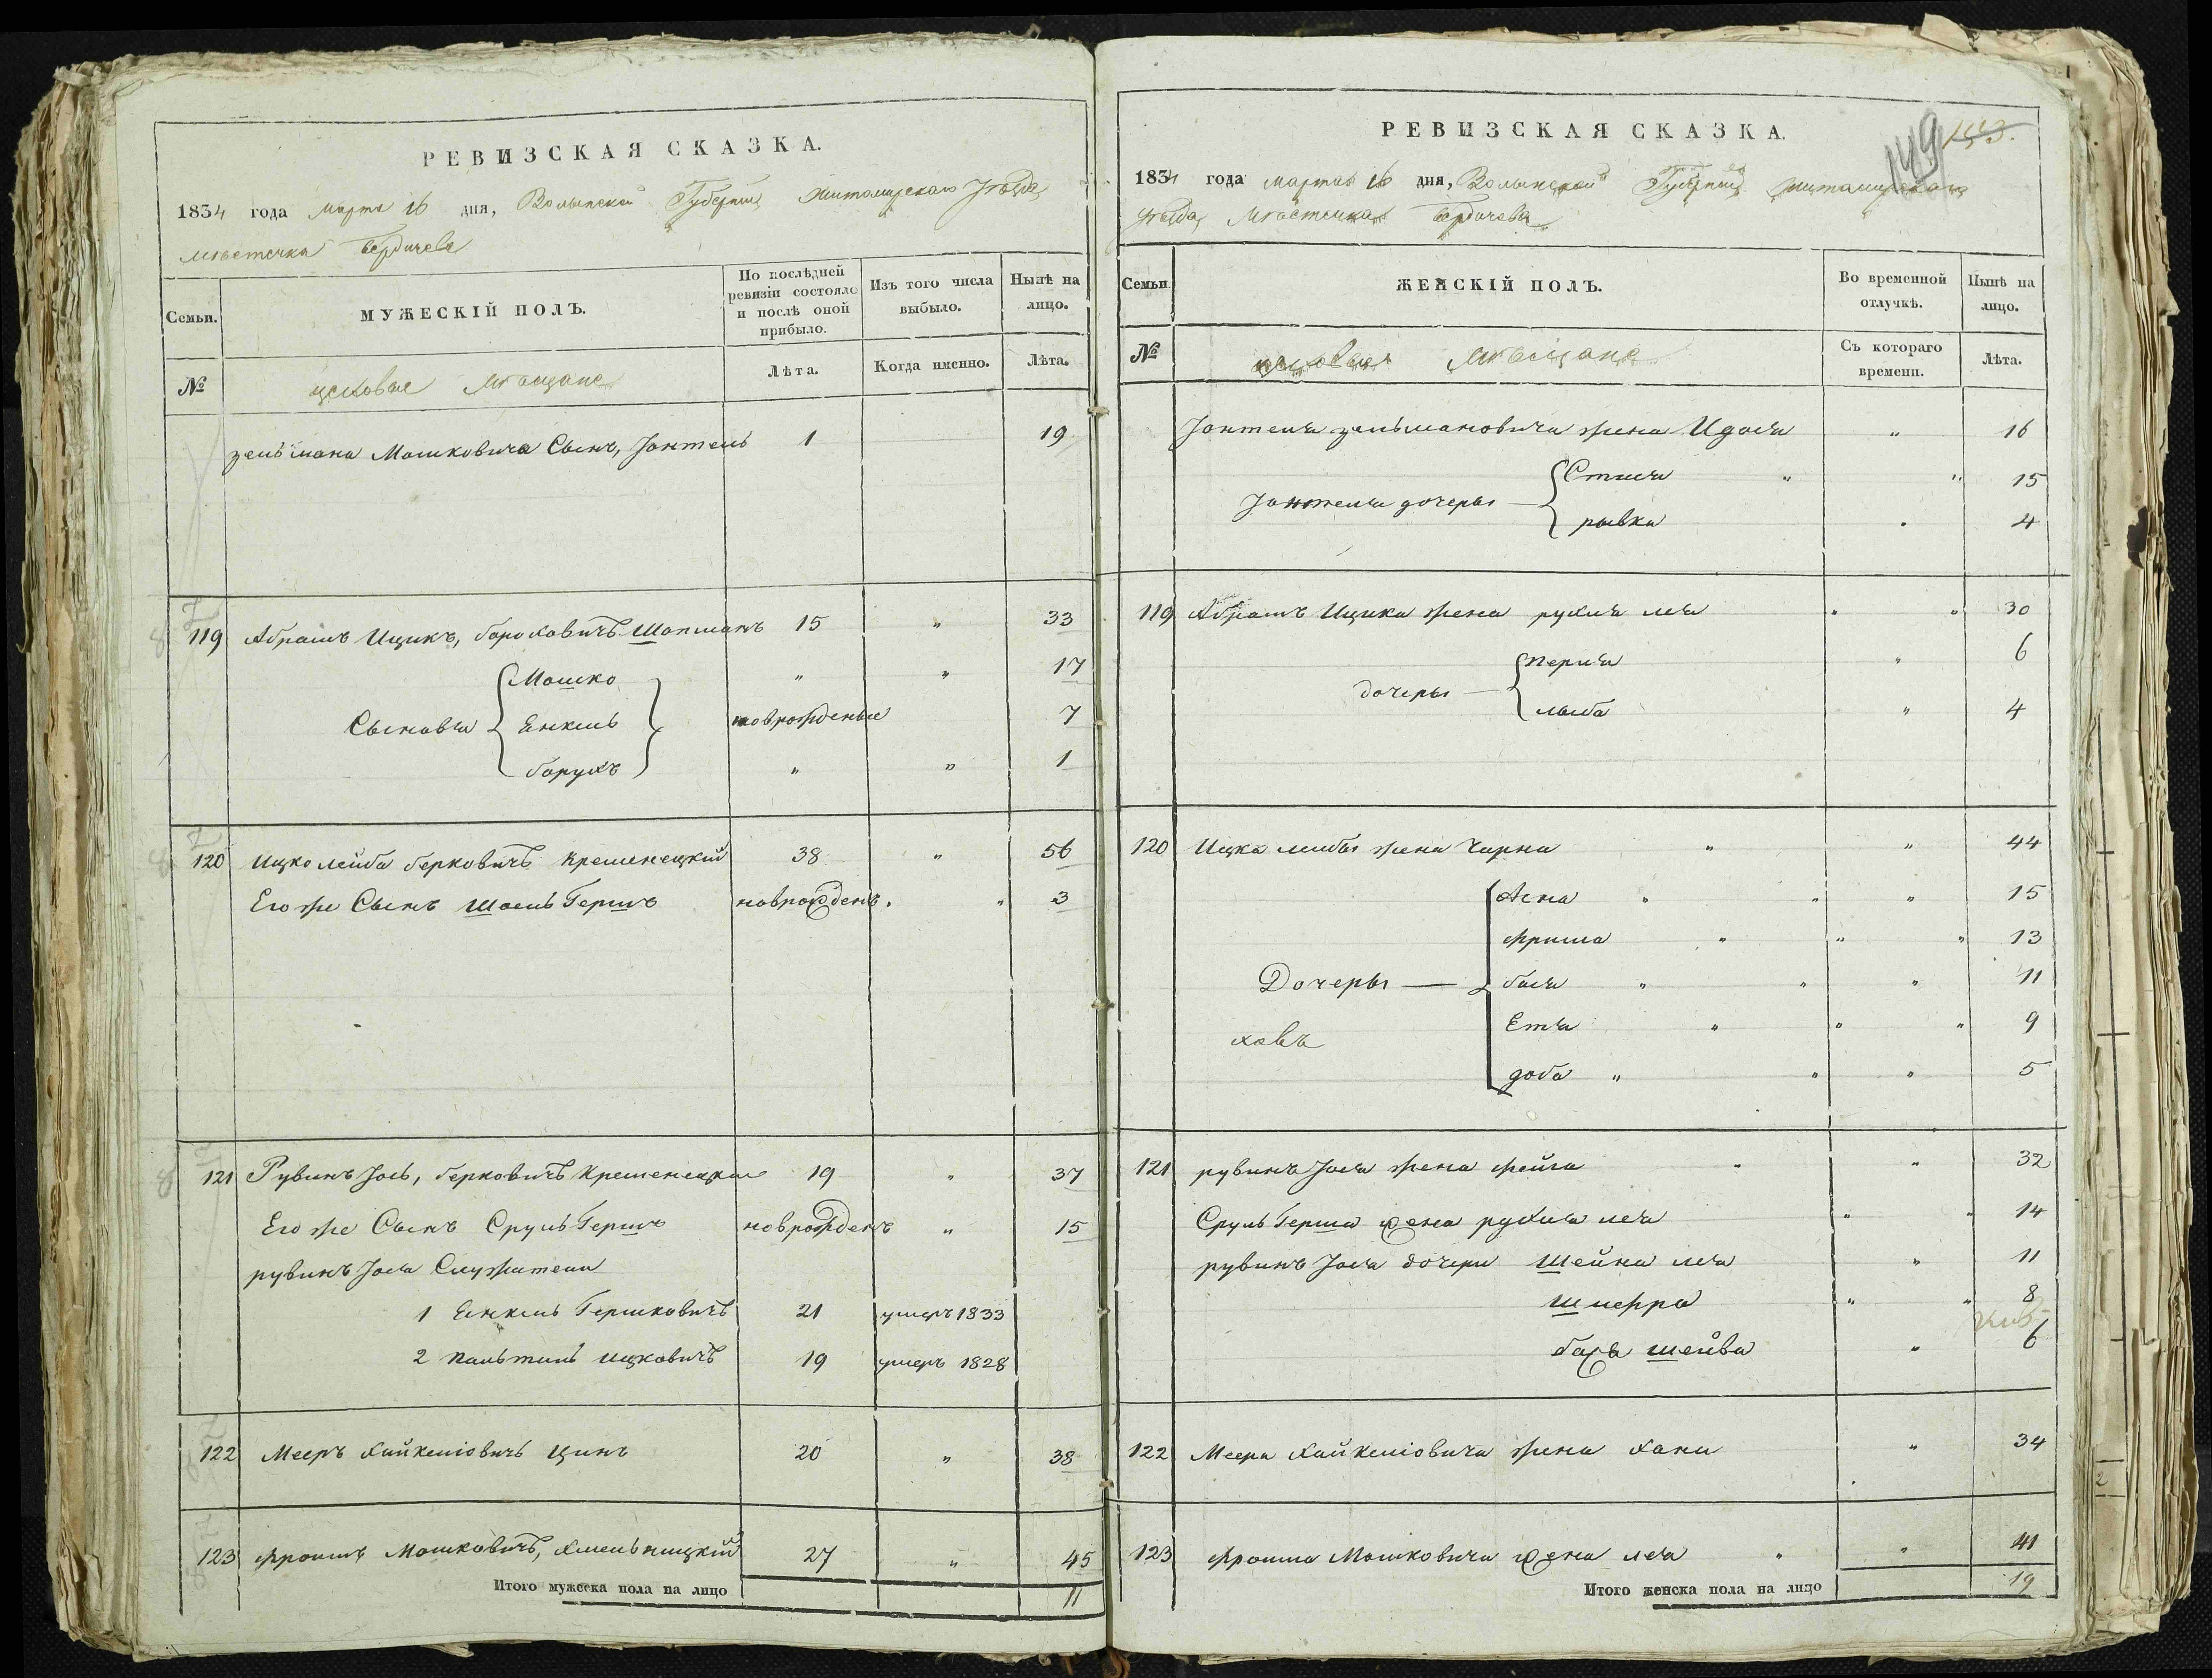 РЕВИЗСКАЯ СКАЗКА.
1834 года марта 16 дня, Волынской Губерніи Житомирскаго Уѣзда
мѣстечка Бердичева
Семьи.
МУЖЕСКІЙ ПОЛЪ.
По послѣдней ревизіи состояло и послѣ оной прибыло.
Изъ того числа выбыло.
Нынѣ на лицо.
№
цеховые мѣщане
Лѣта.
Когда именно.
Лѣта.
зельмана Мошковича Сынъ, Іонтель 1 19
119 Абрамъ Ицикъ, бороховичъ Шапманъ 15 " 33
Мошко " " 17
Сыновья Енкель новрожденые 7
борухъ " " 1
120 Ицко лейба берковичъ кременецкій 38 " 56
Его же Сынъ Шоель Гершъ новрожденъ. " 3
121 Рувинъ Іось, берковичъ кременецкій 19 " 37
Его же Сынъ Сруль Гершъ новрожденъ " 15
рувинъ Іося Служители
1 Енкель Гершковичъ 21 умеръ 1833
2 пальтиель ицковичъ 19 умеръ 1828
122 Мееръ Хайкеліовичъ Цинъ 20 " 38
123 Фроимъ Мошковичъ, хмельницкій 27 " 45
Итого мужеска пола на лицо 11
РЕВИЗСКАЯ СКАЗКА.
149 143.
1834 года марта 16 дня, Волынской Губерніи Житомирскаго
Уѣзда Мѣстечка Бердичева
Семьи
ЖЕНСКІЙ ПОЛЪ.
Во временной отлучкѣ.
Нынѣ на лицо.
№
цеховые мѣщане
Съ котораго времени.
Лѣта.
Іонтеля зельмановича жена Идася " 16
Стися " " 15
Іонтеля дочеры
рывка " 4
119 Абрамъ Ицика жена рухля лея " " 30
перля " 6
дочеры
лыба " 4
120 Ицка лейбы жена Чарна " " 44
Асна " " " 15
Фрима " " " 13
Дочеры — бася " " " 11
Етя " " " 9
ховъ
доба " " " 5
121 рувинъ Іося жена фейга " " 32
Сруль Герша жена рухля лея " " 14
рувинъ Іося дочери Шейна лея " 11
Шпефра " " 8
бася шейва " 6
122 Меера Хайкеліовича жена хана " 34
123 Фроима Мошковича жена лея " " 41
Итого женска пола на лицо 19